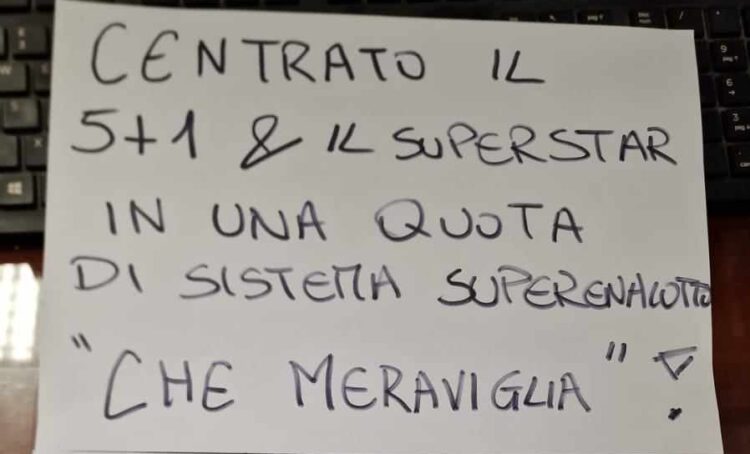 CENTRATO IL
5+1 & IL SUPERSTAR
IN UNA QUOTA
DI SISTEMA SUPERENALOTTO
"CHE MERAVIGLIA"!